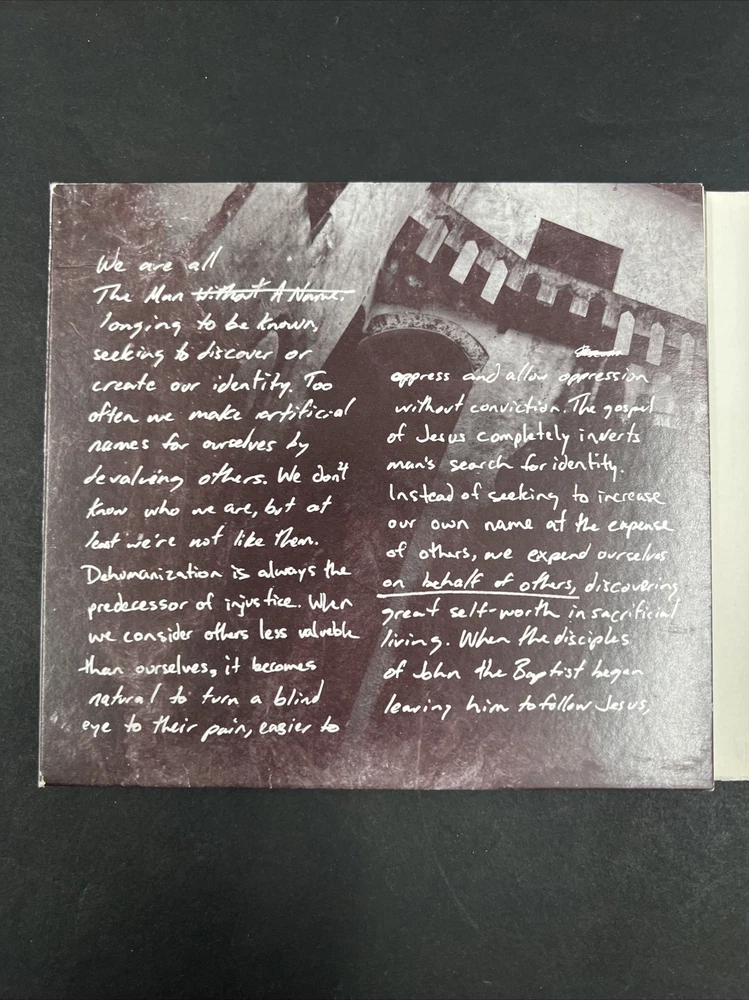 We are all
The Man Without A Name.
longing to be known,
seeking to discover or
create our identity. Too
often we make artificial
names for ourselves by
devaluing others. We don't
know who we are, but at
least we're not like them.
Dehumanization is always the
predecessor of injustice. When
we consider others less valueble
than ourselves, it becomes
natural to turn a blind
eye to their pain, easier to
oppress and allow oppression
without conviction. The gospel
of Jesus completely inverts
man's search for identity.
Instead of seeking to increase
our own name at the expense
of others, we expend ourselves
on behalf of others, discovering
great self-worth in sacrificial
living. When the disciples
of John the Baptist began
leaving him to follow Jesus,